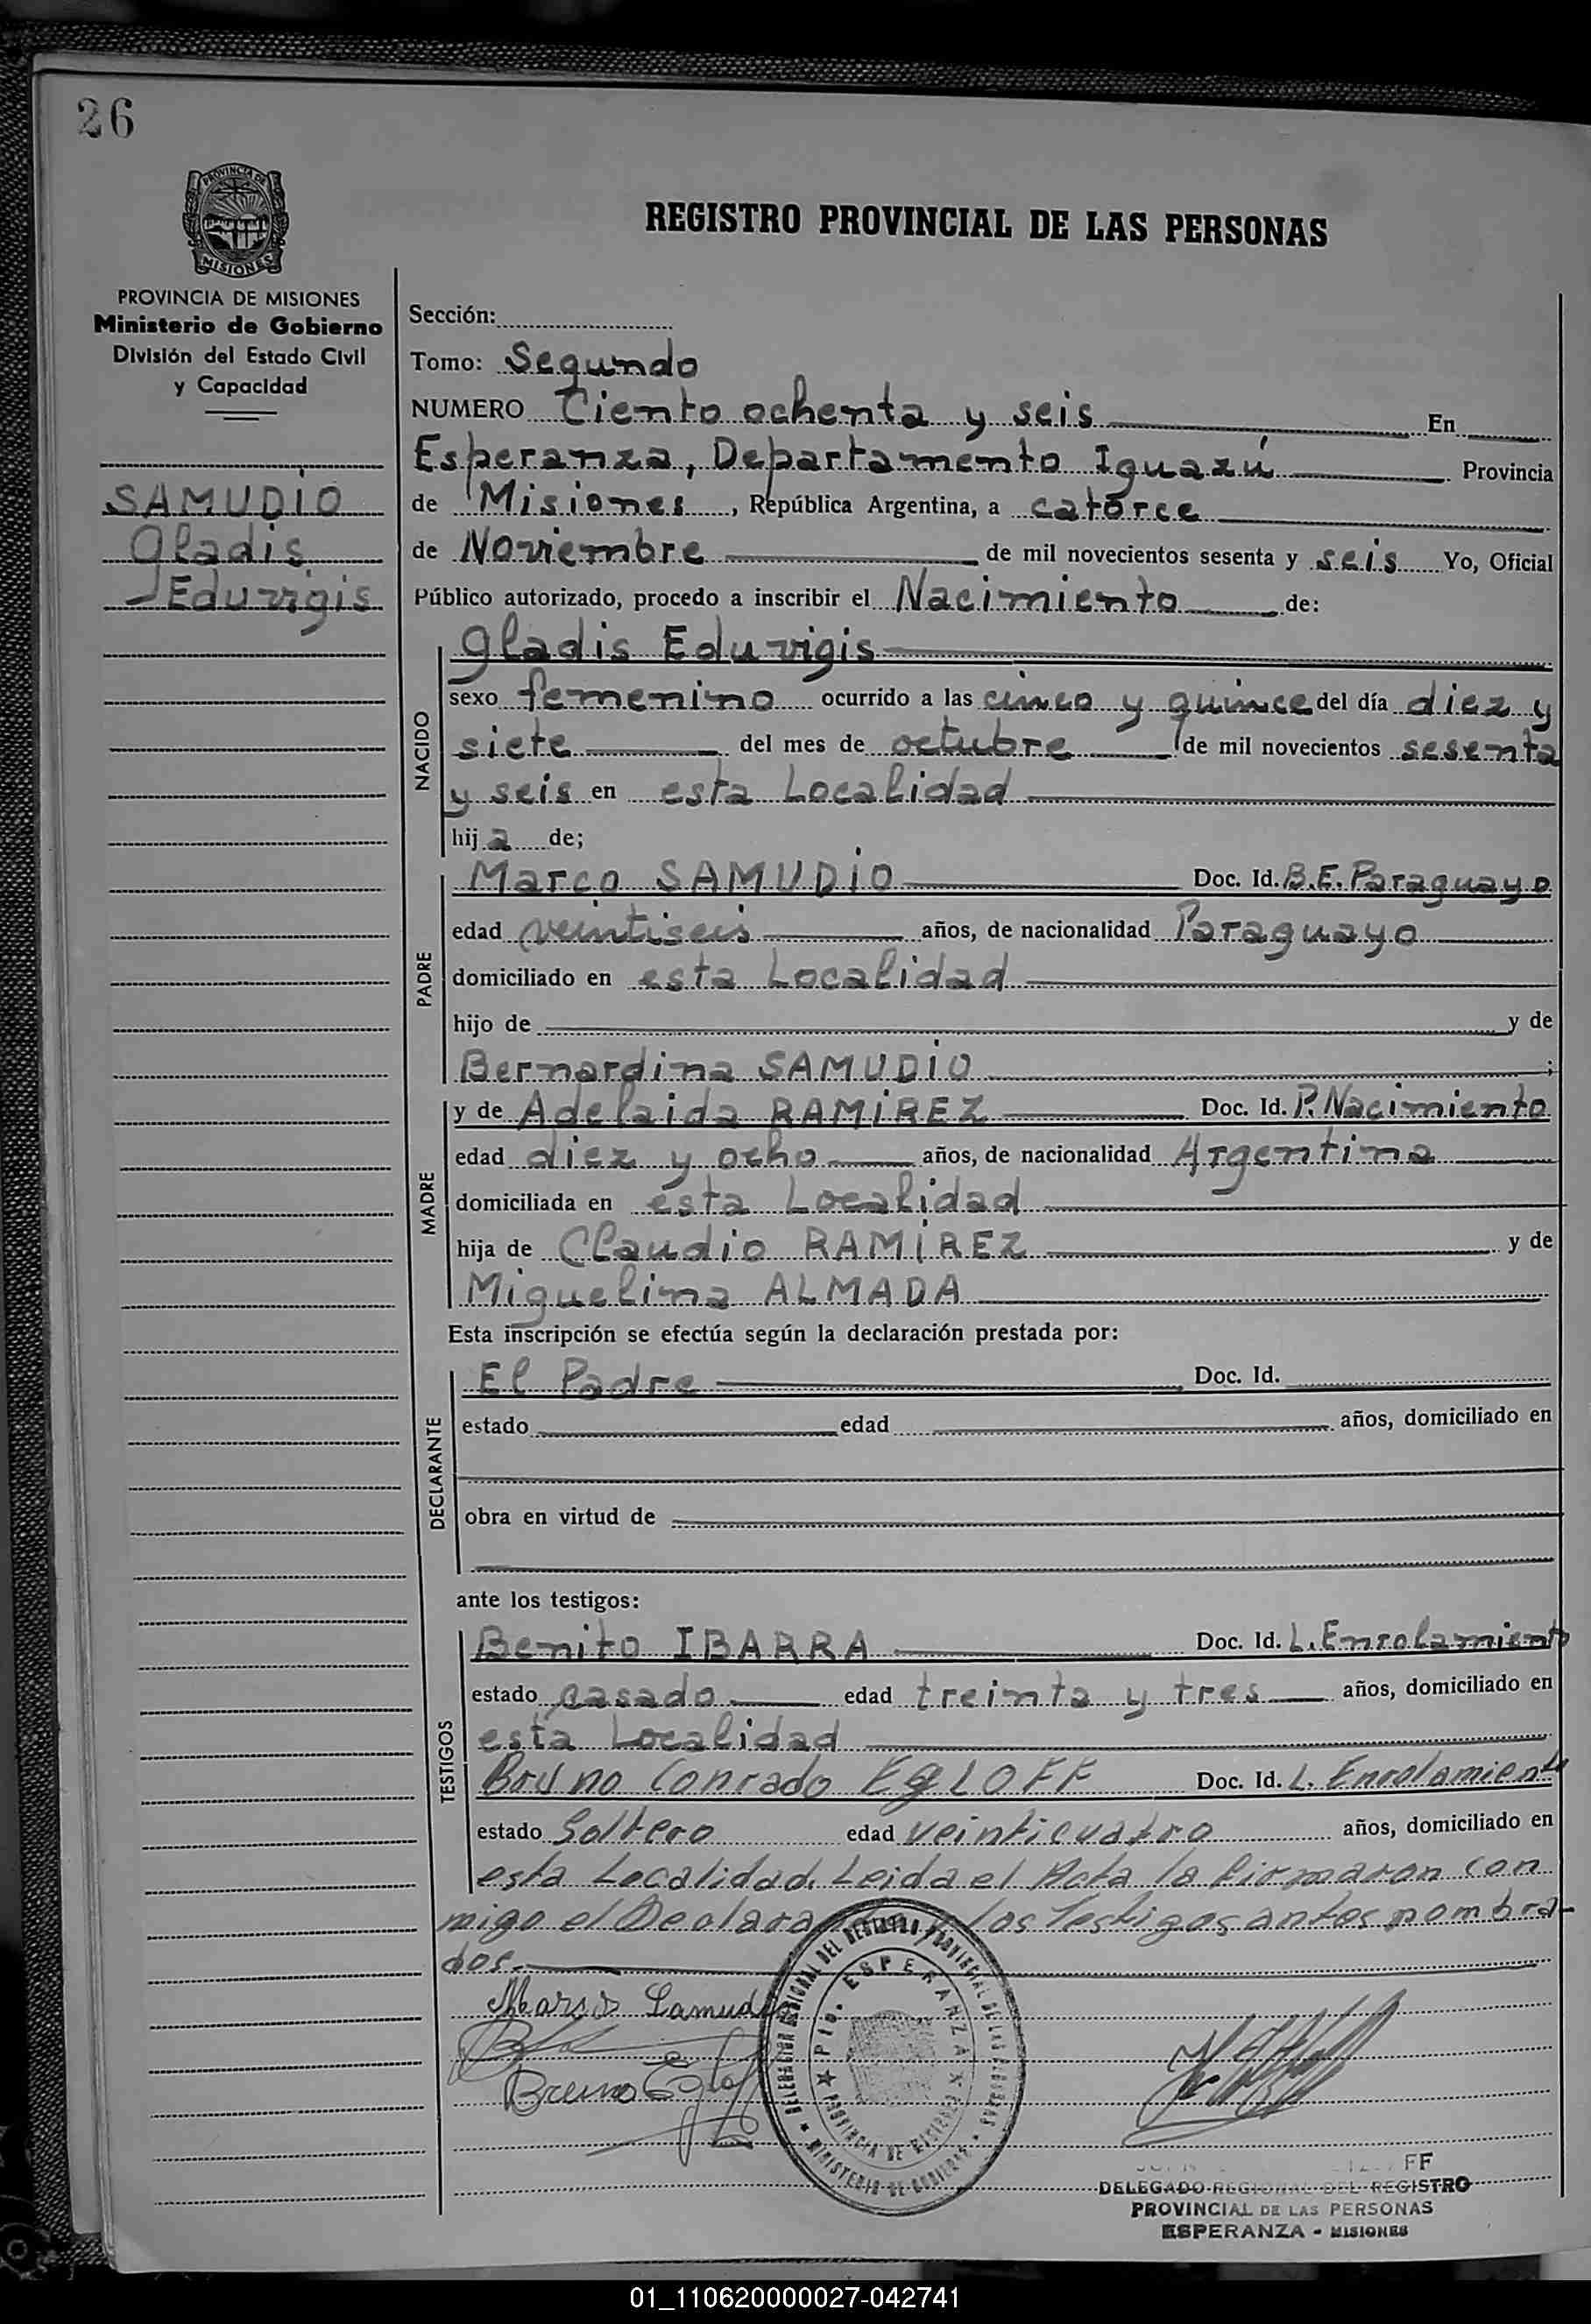 26
PROVINCIA DE
MISIONES
PROVINCIA DE MISIONES
Ministerio de Gobierno
División del Estado Civil
y Capacidad
SAMUDIO
Gladis
Eduvigis
REGISTRO PROVINCIAL DE LAS PERSONAS
Sección:
Tomo: Segundo
NUMERO Ciento ochenta y seis En
Esperanza, Departamento Iguazú Provincia
de Misiones, República Argentina, a catorce
de Noviembre de mil novecientos sesenta y seis Yo, Oficial
Público autorizado, procedo a inscribir el Nacimiento de:
NACIDO
Gladis Eduvigis
sexo femenino ocurrido a las cinco y quince del día diez y
siete del mes de octubre de mil novecientos sesenta
y seis en esta Localidad
hija de;
PADRE
Marco SAMUDIO Doc. Id. B.E. Paraguayo
edad veintiseis años, de nacionalidad Paraguayo
domiciliado en esta Localidad
hijo de y de
Bernardina SAMUDIO ;
MADRE
y de Adelaida RAMIREZ Doc. Id. P. Nacimiento
edad diez y ocho años, de nacionalidad Argentina
domiciliada en esta Localidad
hija de Claudio RAMIREZ y de
Miguelina ALMADA
Esta inscripción se efectúa según la declaración prestada por:
DECLARANTE
El Padre Doc. Id.
estado edad años, domiciliado en
obra en virtud de
ante los testigos:
TESTIGOS
Benito IBARRA Doc. Id. L. Enrolamiento
estado casado edad treinta y tres años, domiciliado en
esta Localidad
Bruno Conrado EGLOFF Doc. Id. L. Enrolamiento
estado Soltero edad veinticuatro años, domiciliado en
esta Localidad. Leida el Acta la firmaron con
migo el Declarante y los Testigos antes nombra-
dos.
Marco Samudio
Bruno Egloff
DELEGACION REGIONAL DEL REGISTRO PROVINCIAL DE LAS PERSONAS
MINISTERIO DE GOBIERNO
Pto. ESPERANZA
PROVINCIA DE MISIONES
FF
DELEGADO REGIONAL DEL REGISTRO
PROVINCIAL DE LAS PERSONAS
ESPERANZA - MISIONES
01_110620000027-042741